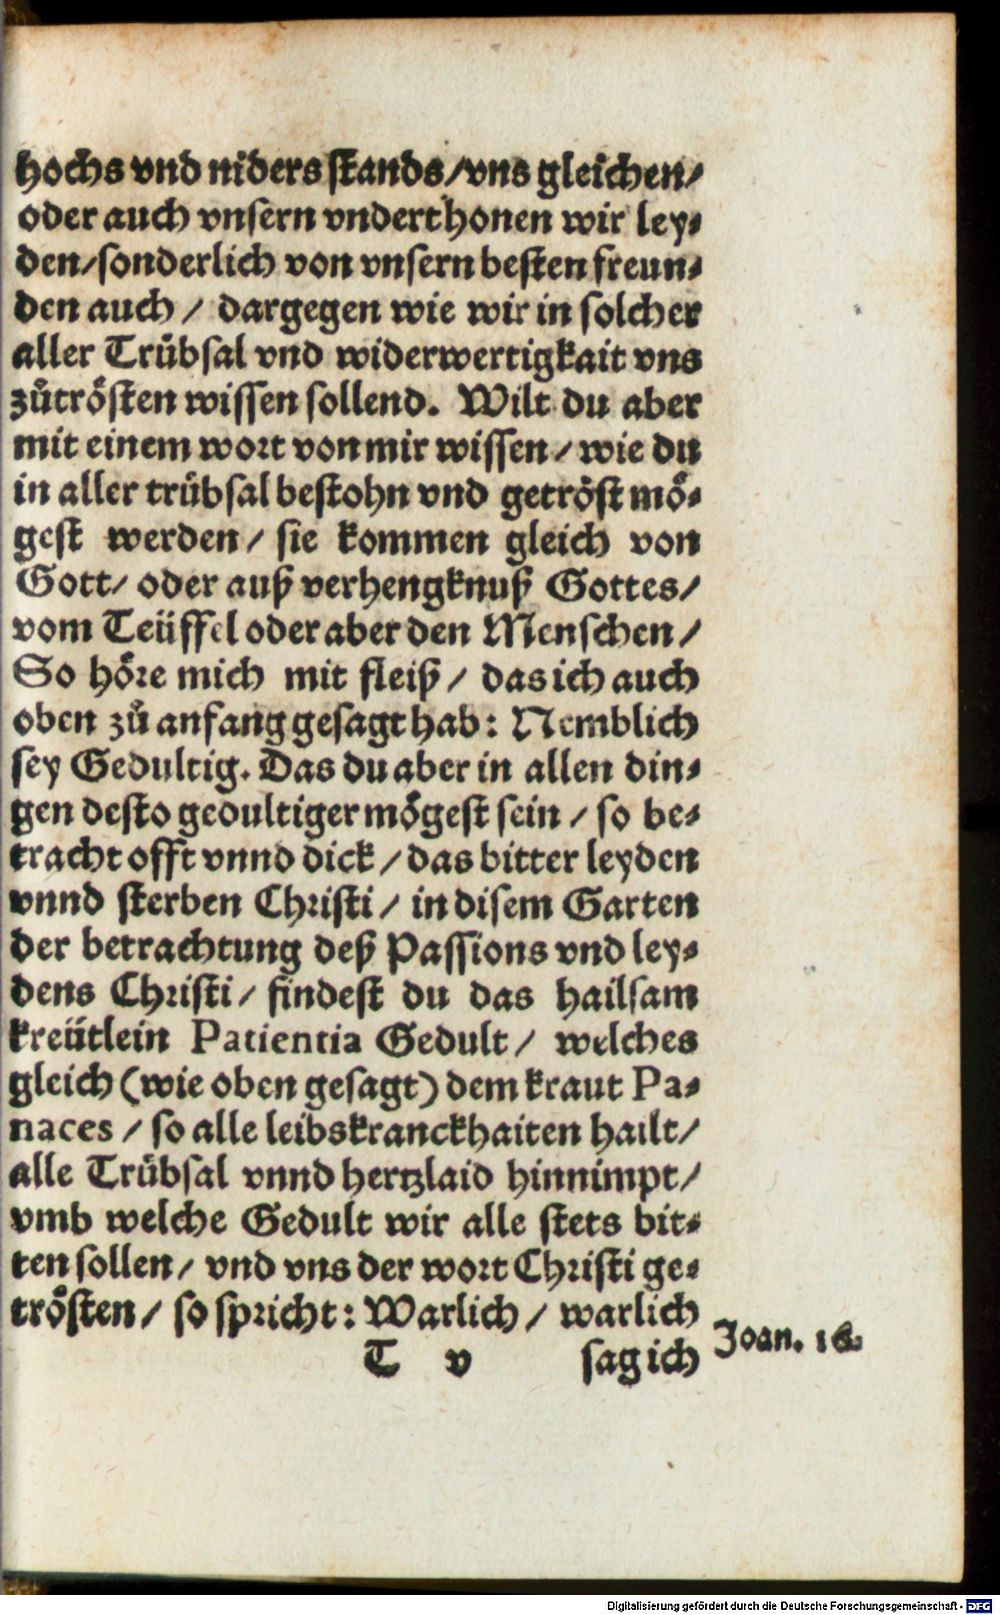 hochs vnd niders stands/vns gleichen/
oder auch vnsern vnderthonen wir ley⸗
den/sonderlich von vnsern besten freun⸗
den auch / dargegen wie wir in solcher
aller Trübsal vnd widerwertigkait vns
zůtrösten wissen sollend. Wilt du aber
mit einem wort von mir wissen / wie du
in aller trübsal bestohn vnd getröst mö⸗
gest werden / sie kommen gleich von
Gott/ oder auß verhengknuß Gottes/
vom Teüffel oder aber den Menschen /
So höre mich mit fleiß / das ich auch
oben zů anfang gesagt hab: Nemblich
sey Gedultig. Das du aber in allen din⸗
gen desto gedultiger mögest sein / so be⸗
tracht offt vnnd dick / das bitter leyden
vnnd sterben Christi / in disem Garten
der betrachtung deß Passions vnd ley⸗
dens Christi / findest du das hailsam
kreütlein Patientia Gedult / welches
gleich (wie oben gesagt) dem kraut Pa⸗
naces / so alle leibskranckhaiten hailt/
alle Trübsal vnnd hertzlaid hinnimpt/
vmb welche Gedult wir alle stets bit⸗
ten sollen / vnd vns der wort Christi ge⸗
trösten / so spricht: Warlich / warlich
Joan. 16.
T v sag ich
Digitalisierung gefördert durch die Deutsche Forschungsgemeinschaft - DFG